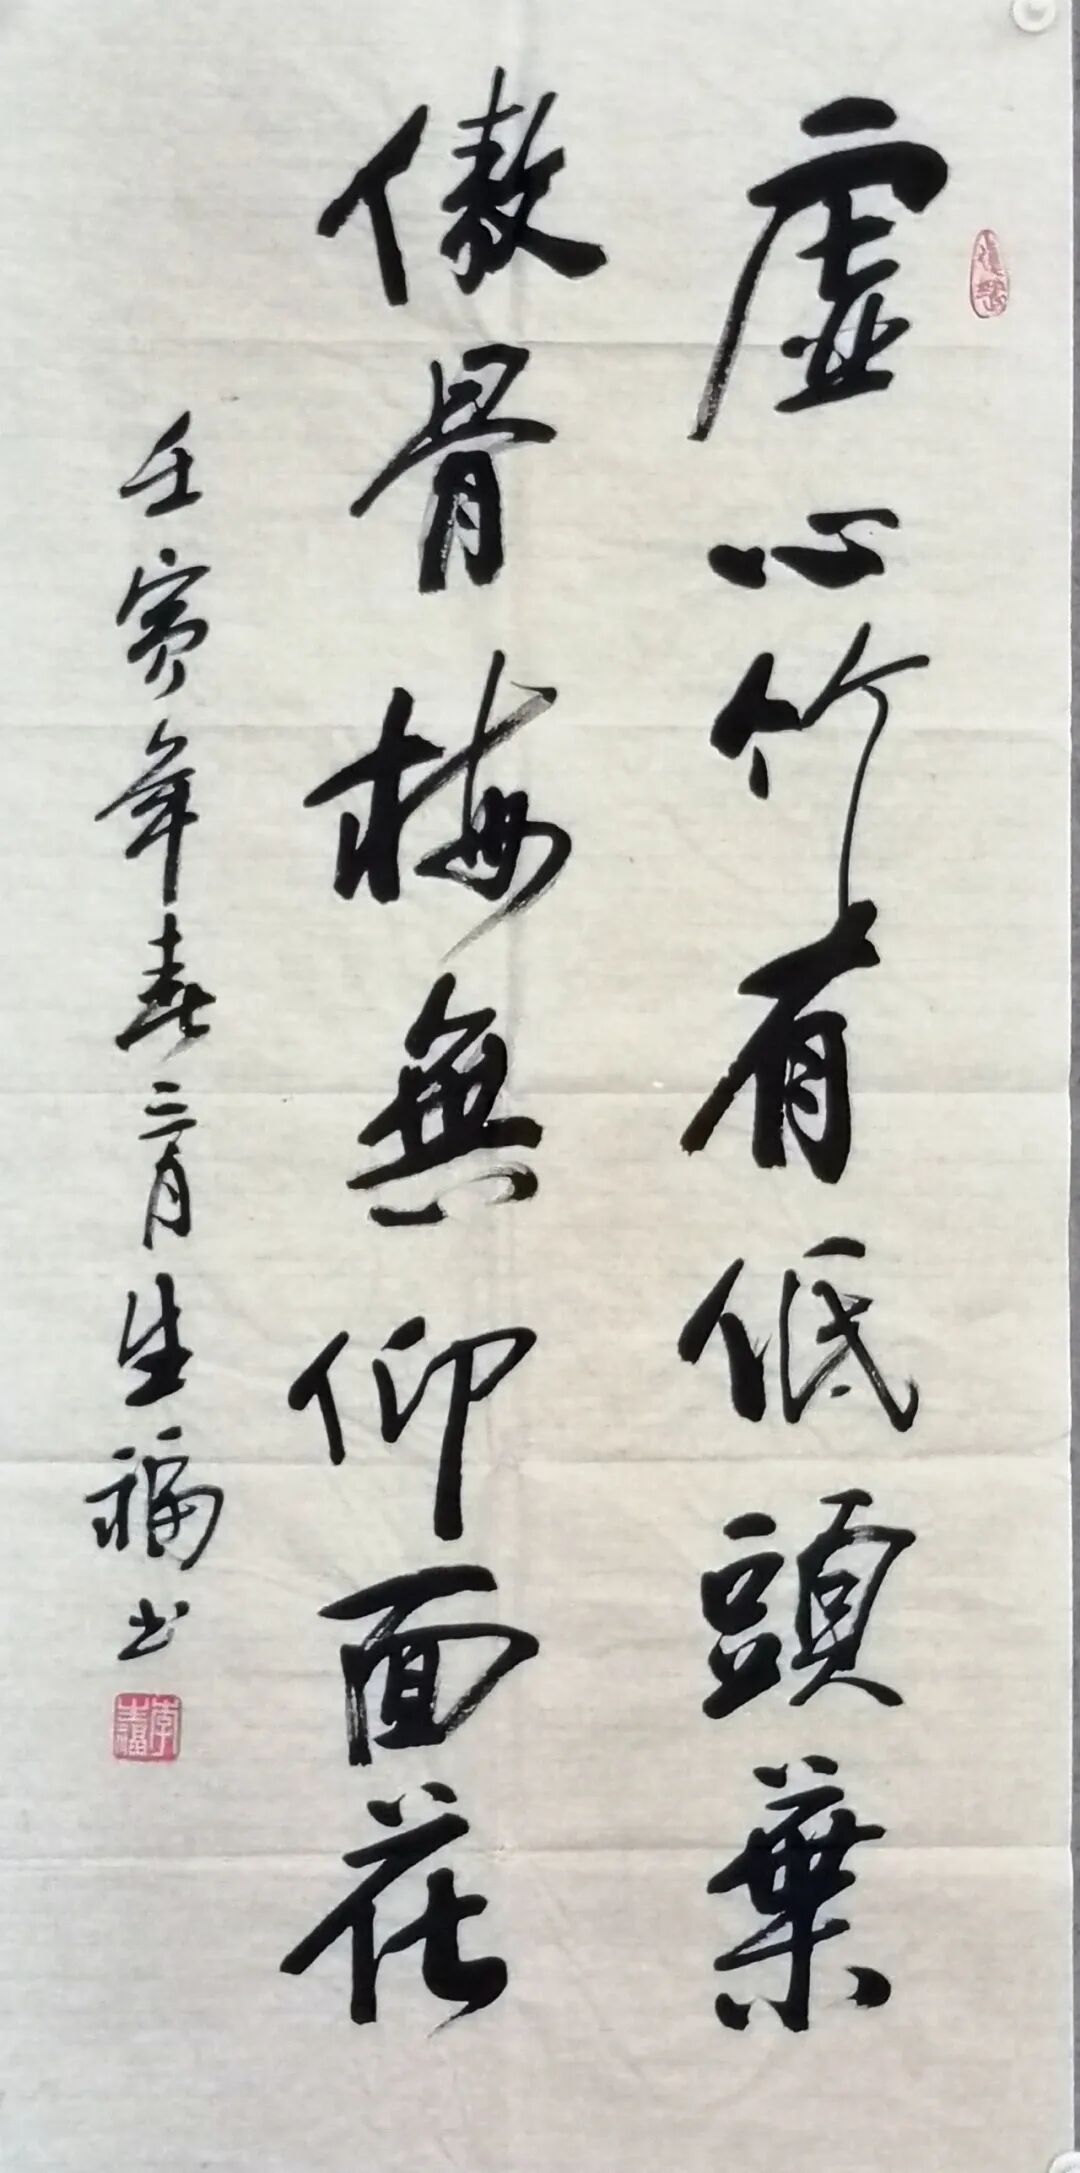 虛心竹有低頭葉
傲骨梅無仰面花
壬寅年春二月生福書
李生福